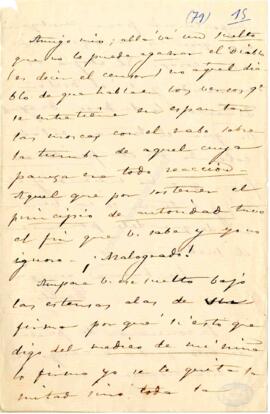 (79) 15
Amigo mio; allá vá un suelto
que no lo puede agarrar el Diablo
(es decir el censor) no aquel dia-
blo de que hablaen los versos q.e
se entretiene en espantar
las moscas con el rabo sobre
la tumba de aquel cuya
panza era toda reaccion.
Aquel que por sostener el
principio de autoridad tuvo
el fin que V. sabe y yo no
ignoro. ¡Malogrado!
Ampare V. ese suelto bajo
las estensas alas de su
firma porque si esto que
digo del medico de mi niña
lo firmo yo se le quita la
mitad sinó toda la